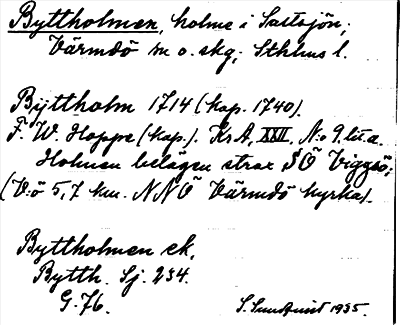 Byttholmen, holme i Saltsjön,
Värmdö sn o. skg, Sthlms l.
Byttholm 1714 (kop. 1740).
F. W. Hoppe (kop.). KrA, XXII, N:o 9 lit. a.
Holmen belägen strax SÖ Viggsö;
(V:ö 5,7 km. NNÖ Värmdö kyrka).
Byttholmen ek.
Bytth. Sj. 234.
G. 76.
S. Sundqvist 1935.